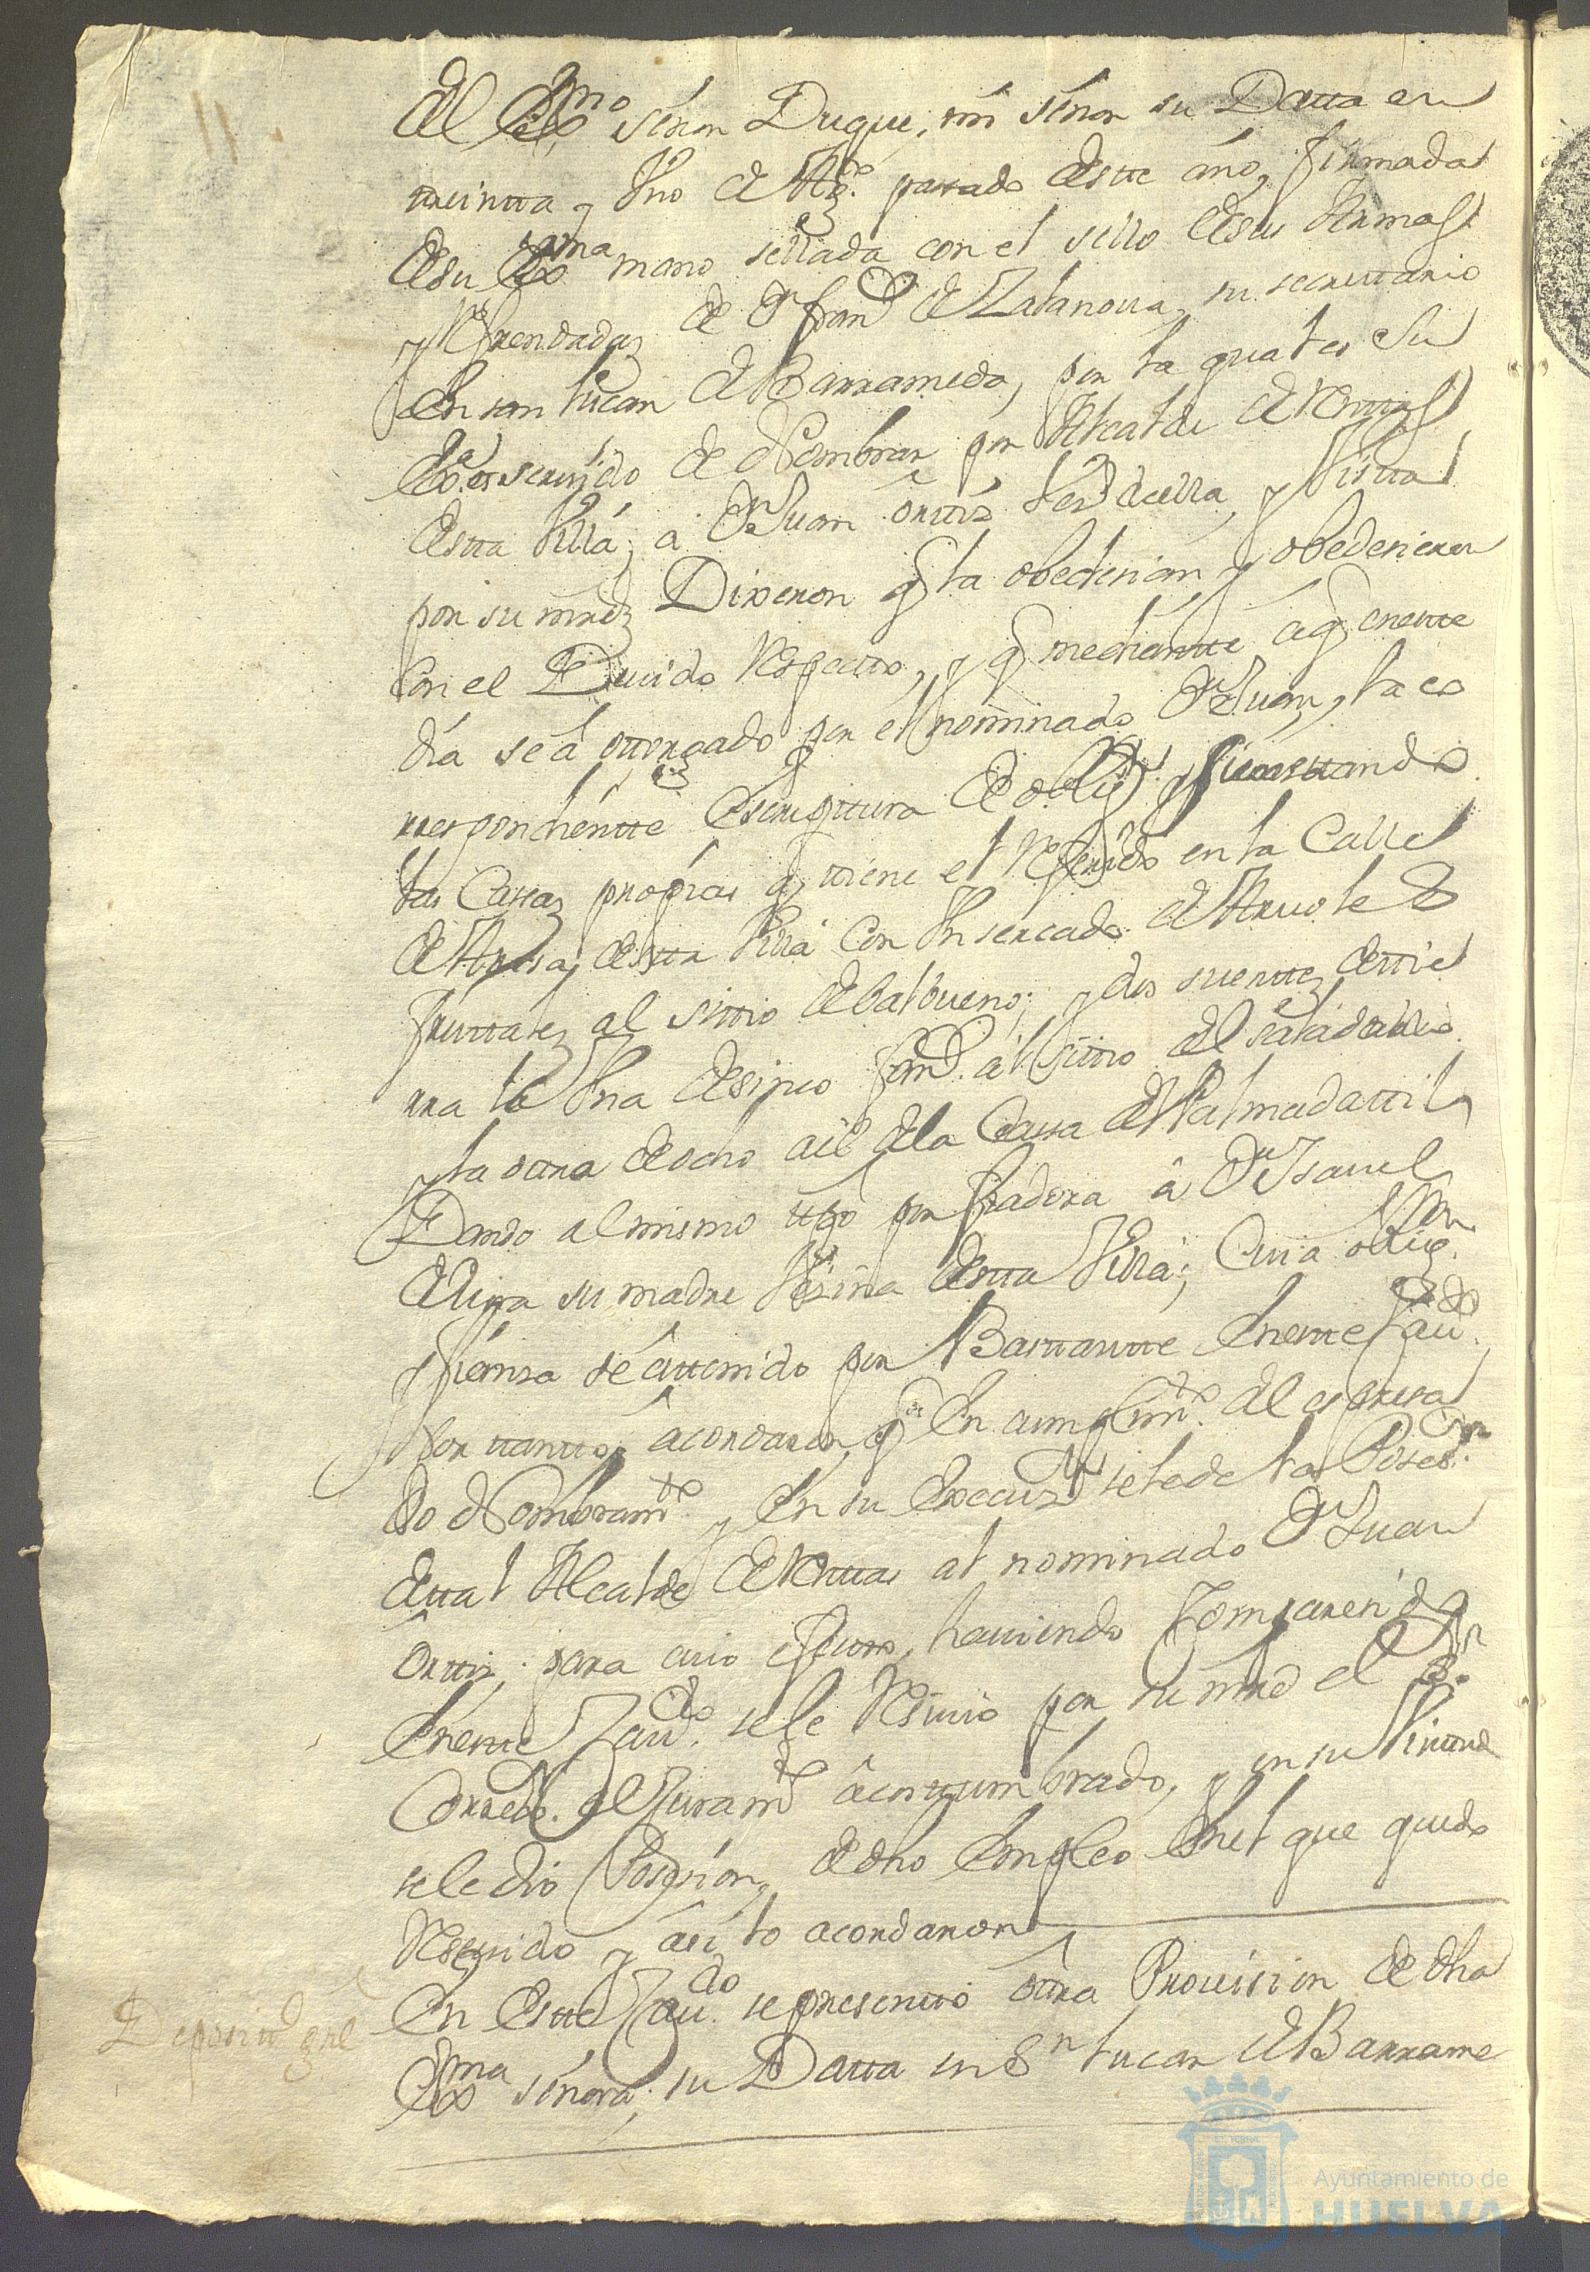 del Exmo señor Duque, mi señor su Datta en
treintta y Vno de Agto. pasado deste año, firmada
desu Exma mano sellada con el sello desus Armas
y Refrendada de Dn. franco de Zatanoua, su secrettario
en san lucar de Barrameda, por la qual es su
Exa. seruido de Nombrar por Alcalde de Renttas
destta Villa, a Dn. Juan Orttiz vezo. della, y Vistta
por su mrd Dixeron q la obedesian, y obedesieron
con el Deuido Respecto, y q mediantte a q eneste
dia se á ottorgado por el nominado Dn. Juan, la co
rrespondientte escriptura de oblign. y
las Casas propias q tiene el Referido en la Calle
destta Villa con Vn sercado de Aruoles
fruttales al sittio de balbueno; y dos suerttes de tie
rra la Vna desinco fans. al sittio del saladillo
y la otra de ocho al de la Casa de Palmadattil
Dando al mismo tpo por fiadora â Da. Isauel
de Vera su madre Vezina destta Villa; Cuia oblign.
y fianza se á ttenido por Basttantte en este Caudo.
Por ttantto, acordaron, q en cumplimto. del espresa
do Nombramto. y en su execuzn. se le de la Poseson.
de tal Alcalde de Renttas al nominado Dn. Juan
Orttiz, para cuio efecto, hauiendo Comparesido
en este Caudo. se le Resiuio por su mrd el Sr.
Corredor. el Juramto acosttumbrado, y en su Virttud
se le dio Posesion, de dho empleo en el que quedo
Reseuido y asi lo acordaron
En Este Caudo. se presentto ôttra Prouision de dha
Exma señora, su Datta en Sn. lucar de Barrame
Depositto. gral
11
Ayuntamiento de
HUELVA